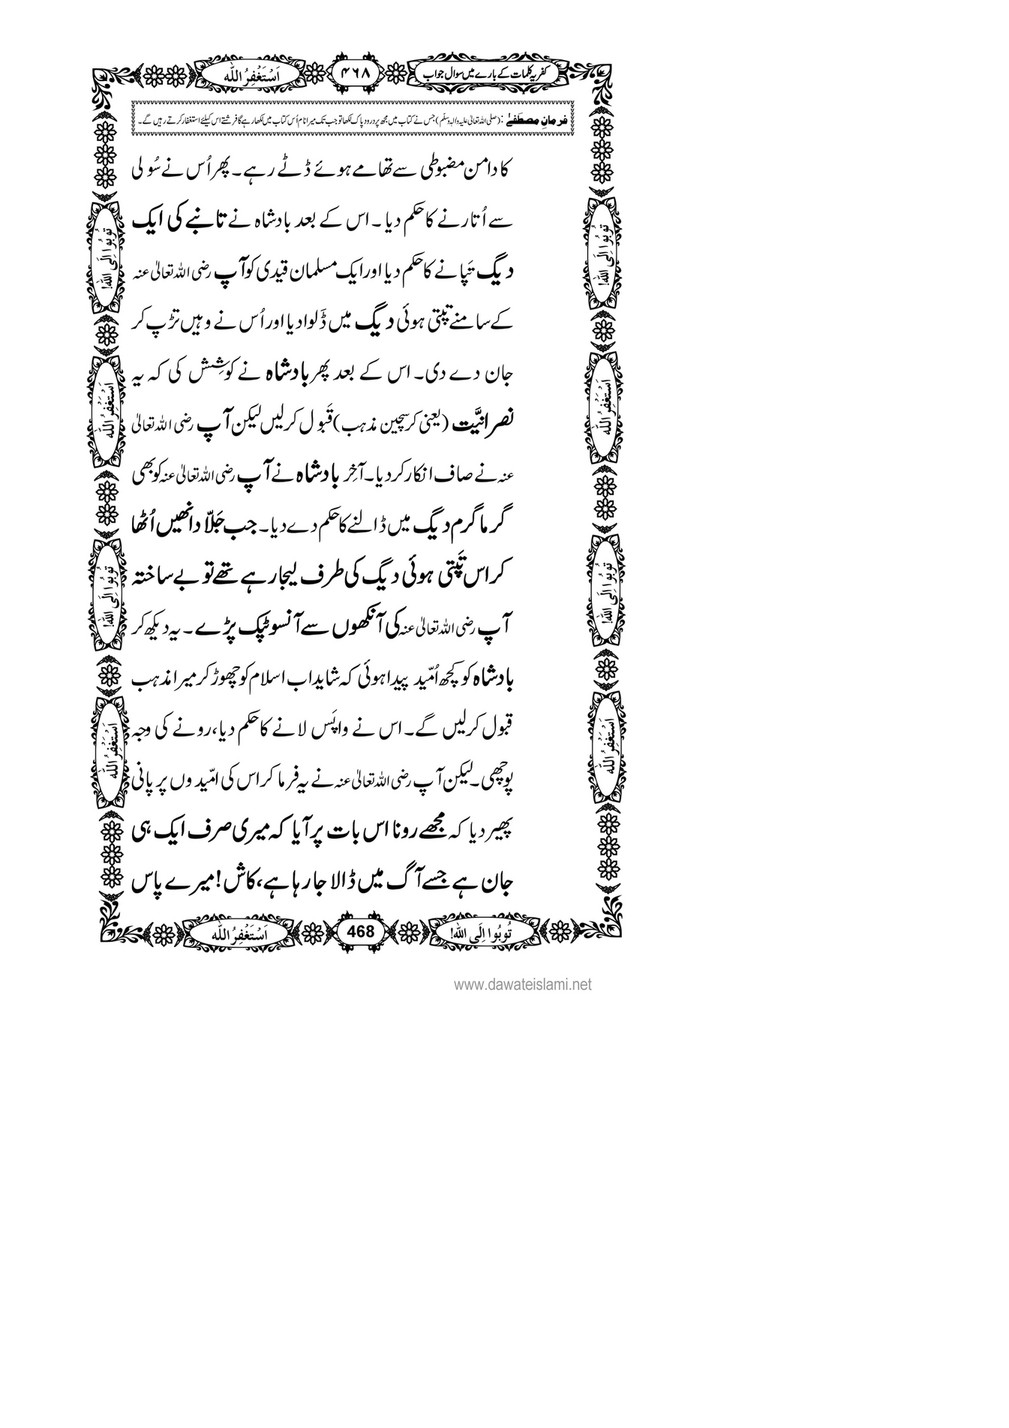 کفریہ کلمات کے بارے میں سوال جواب
۴۶۸
اَسْتَغْفِرُ اللّٰہ
فرمانِ مصطَفےٰ : (صلی اللہ تعالیٰ علیہ والہ وسلّم) جس نے کتاب میں مجھ پر درود پاک لکھا تو جب تک میرا نام اُس کتاب میں لکھا رہے گا فرشتے اس کیلئے استغفار کرتے رہیں گے۔
کا دامن مضبوطی سے تھامے ہوئے ڈٹے رہے۔ پھر اُس نے سُولی
سے اُتارنے کا حکم دیا ۔ اس کے بعد بادشاہ نے تانبے کی ایک
دیگ تَپانے کا حکم دیا اور ایک مسلمان قیدی کو آپ رضی اللہ تعالیٰ عنہ
کے سامنے تپتی ہوئی دیگ میں ڈَلوا دیا اور اُس نے وہیں تڑپ کر
جان دے دی۔ اس کے بعد پھر بادشاہ نے کوشِش کی کہ یہ
نصرانیَّت (یعنی کرسچین مذہب) قَبول کرلیں لیکن آپ رضی اللہ تعالیٰ
عنہ نے صاف انکار کر دیا۔ آخِر بادشاہ نے آپ رضی اللہ تعالیٰ عنہ کو بھی
گرما گرم دیگ میں ڈالنے کا حکم دے دیا۔ جب جَلّاد انھیں اُٹھا
کر اس تَپتی ہوئی دیگ کی طرف لیجا رہے تھے تو بے ساختہ
آپ رضی اللہ تعالیٰ عنہ کی آنکھوں سے آنسو ٹپک پڑے۔ یہ دیکھ کر
بادشاہ کو کچھ اُمّید پیدا ہوئی کہ شاید اب اسلام کو چھوڑ کر میرا مذہب
قبول کرلیں گے۔ اس نے واپَس لانے کا حکم دیا، رونے کی وجہ
پوچھی۔ لیکن آپ رضی اللہ تعالیٰ عنہ نے یہ فرما کر اس کی امّیدوں پر پانی
پھیر دیا کہ مجھے رونا اس بات پر آیا کہ میری صرف ایک ہی
جان ہے جسے آگ میں ڈالا جا رہا ہے، کاش! میرے پاس
تُوبُوا اِلَی اللہ!
اَسْتَغْفِرُ اللّٰہ
تُوبُوا اِلَی اللہ!
اَسْتَغْفِرُ اللّٰہ
تُوبُوا اِلَی اللہ!
اَسْتَغْفِرُ اللّٰہ
تُوبُوا اِلَی اللہ!
اَسْتَغْفِرُ اللّٰہ
تُوبُوا اِلَی اللہ!
468
اَسْتَغْفِرُ اللّٰہ
www.dawateislami.net